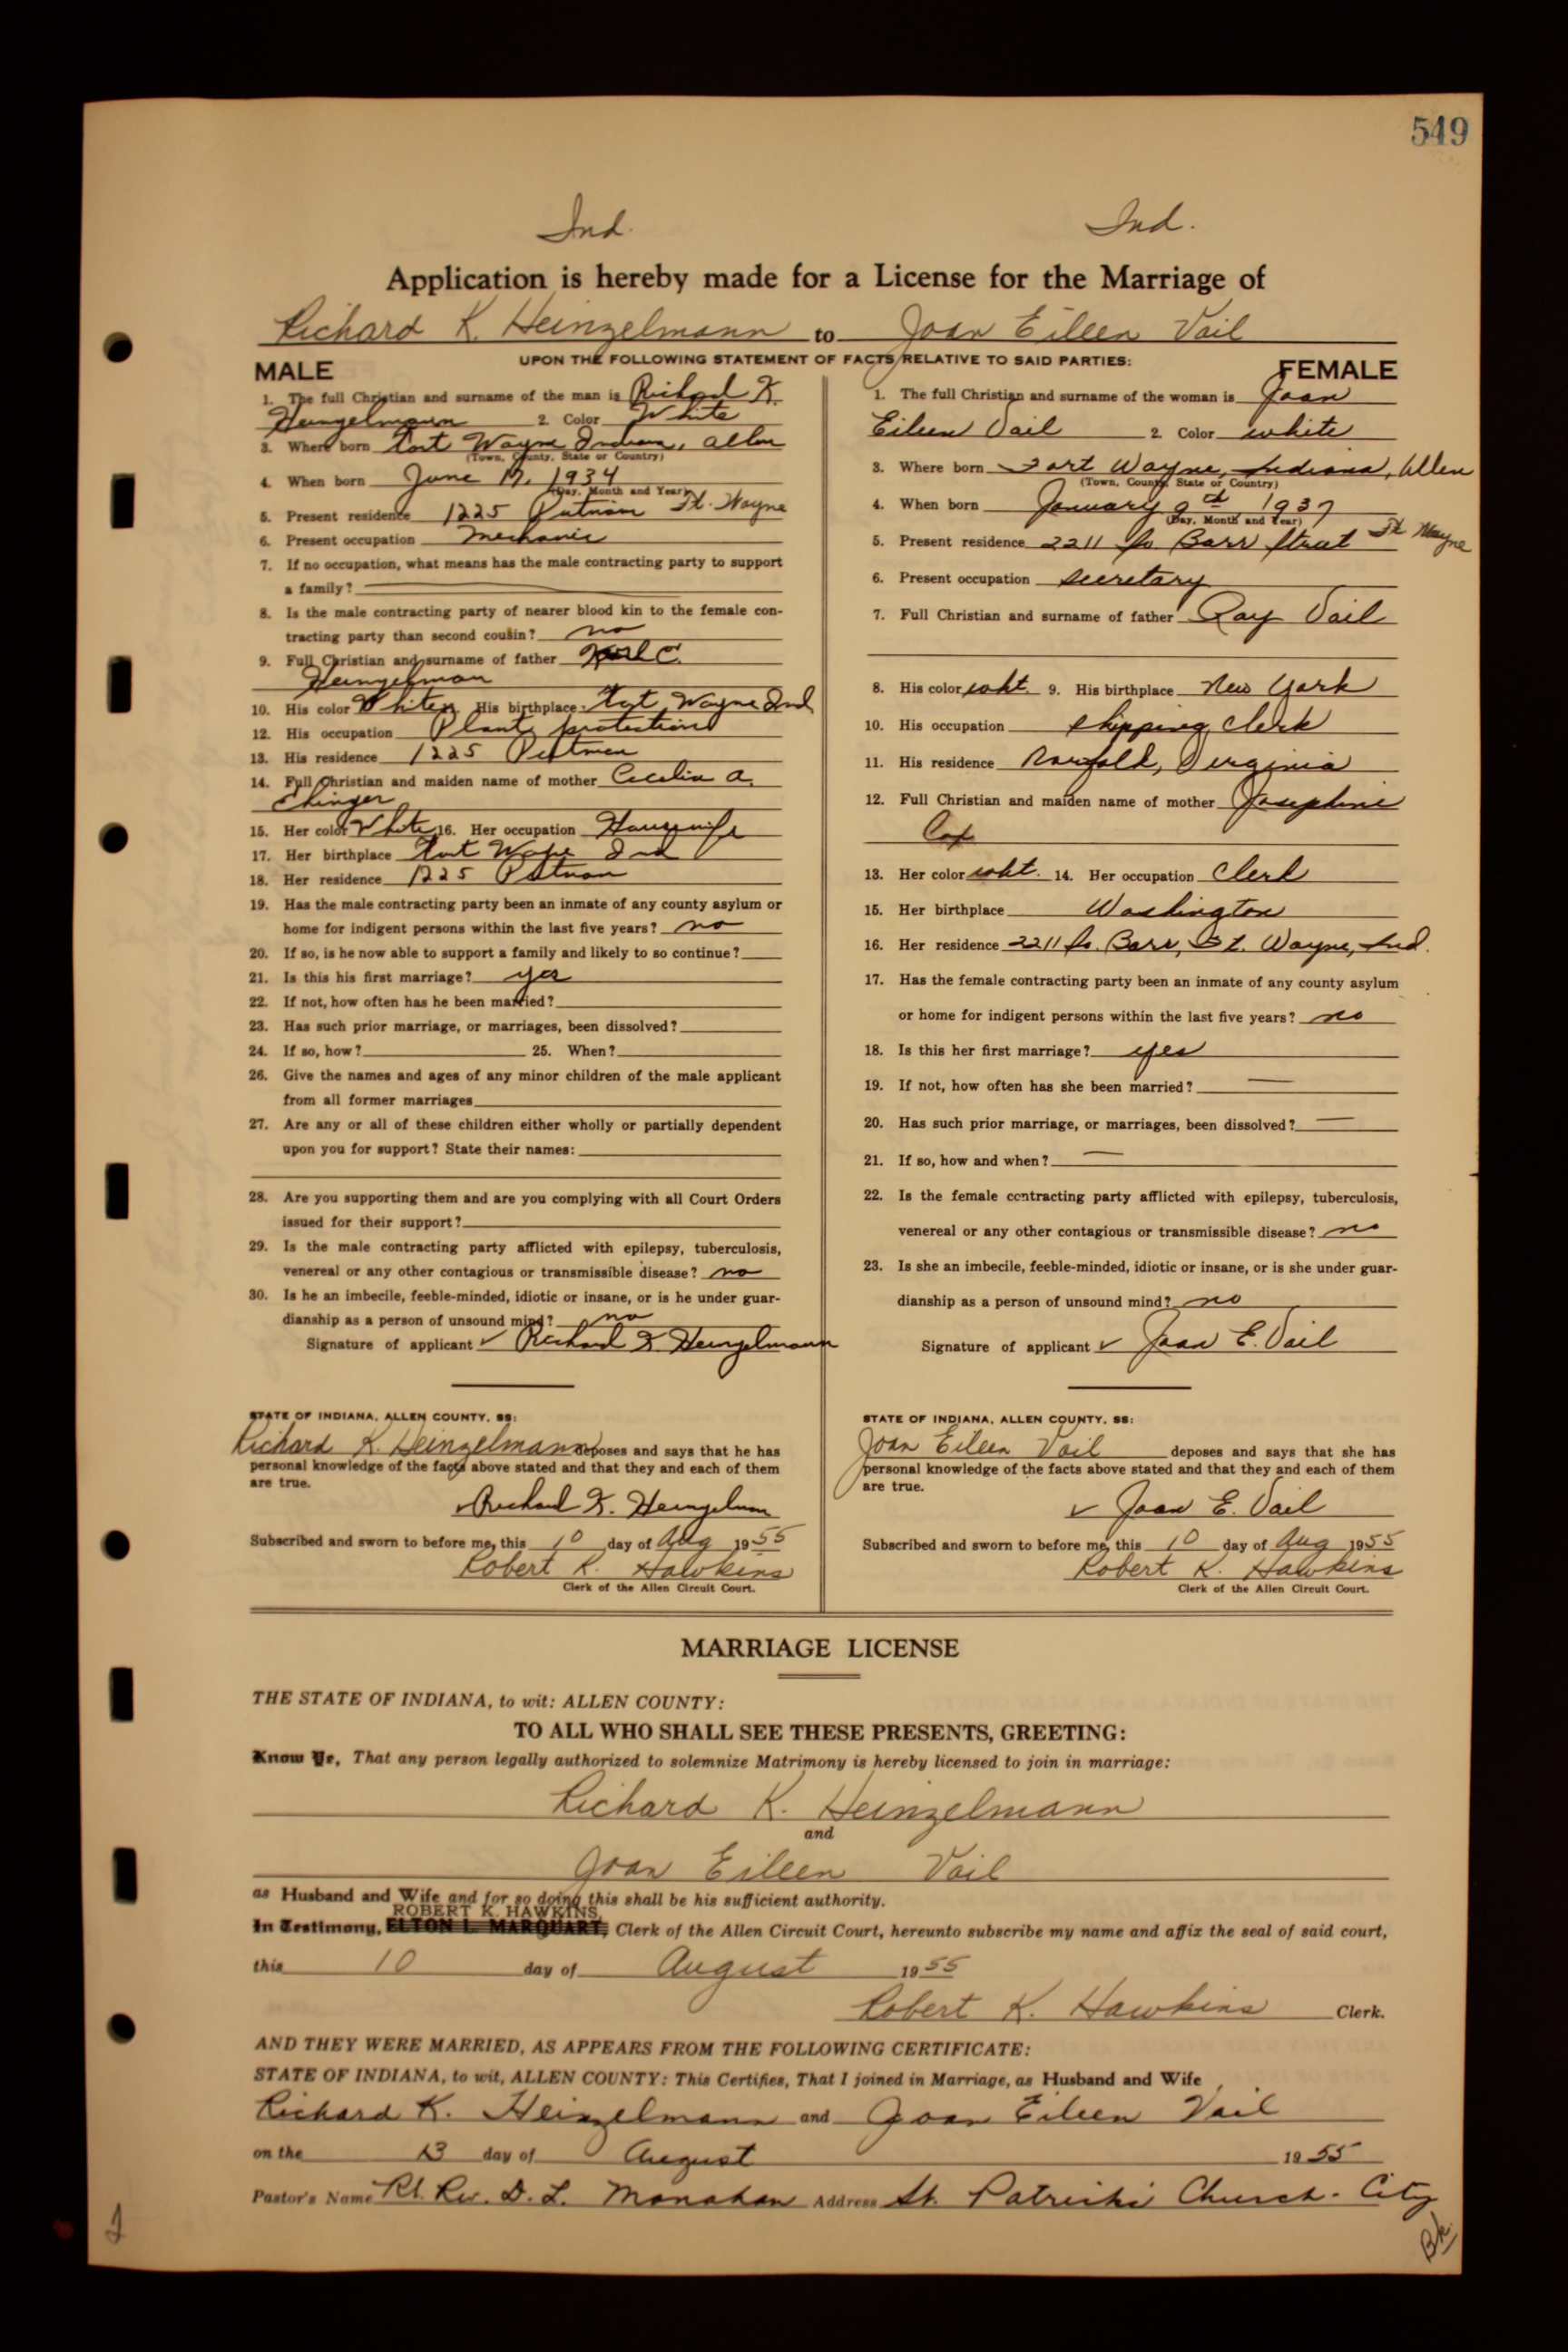 549
Ind. Ind.
Application is hereby made for a License for the Marriage of
Richard K. Heinzelmann to Joan Eileen Vail
UPON THE FOLLOWING STATEMENT OF FACTS RELATIVE TO SAID PARTIES:
MALE
1. The full Christian and surname of the man is Richard K.
Heinzelmann 2. Color White
3. Where born Fort Wayne Indiana, Allen
(Town, County, State or Country)
4. When born June 17, 1934
(Day, Month and Year)
5. Present residence 1225 Putnam Ft. Wayne
6. Present occupation Mechanic
7. If no occupation, what means has the male contracting party to support
a family?
8. Is the male contracting party of nearer blood kin to the female con-
tracting party than second cousin? no
9. Full Christian and surname of father Karl C.
Heinzelman
10. His color White His birthplace Fort Wayne Ind
12. His occupation Plant protection
13. His residence 1225 Putman
14. Full Christian and maiden name of mother Cecelia A.
Ehinger
15. Her color White 16. Her occupation Housewife
17. Her birthplace Fort Wayne Ind
18. Her residence 1225 Putnam
19. Has the male contracting party been an inmate of any county asylum or
home for indigent persons within the last five years? no
20. If so, is he now able to support a family and likely to so continue?
21. Is this his first marriage? yes
22. If not, how often has he been married?
23. Has such prior marriage, or marriages, been dissolved?
24. If so, how? 25. When?
26. Give the names and ages of any minor children of the male applicant
from all former marriages
27. Are any or all of these children either wholly or partially dependent
upon you for support? State their names:
28. Are you supporting them and are you complying with all Court Orders
issued for their support?
29. Is the male contracting party afflicted with epilepsy, tuberculosis,
venereal or any other contagious or transmissible disease? no
30. Is he an imbecile, feeble-minded, idiotic or insane, or is he under guar-
dianship as a person of unsound mind? no
Signature of applicant ✓ Richard K. Heinzelmann
STATE OF INDIANA, ALLEN COUNTY, SS:
Richard K. Heinzelmann deposes and says that he has
personal knowledge of the facts above stated and that they and each of them
are true.
✓ Richard K. Heinzelman
Subscribed and sworn to before me, this 10 day of Aug 1955
Robert K. Hawkins
Clerk of the Allen Circuit Court.
FEMALE
1. The full Christian and surname of the woman is Joan
Eileen Vail 2. Color white
3. Where born Fort Wayne, Indiana, Allen
(Town, County, State or Country)
4. When born January 9th 1937
(Day, Month and Year)
5. Present residence 2211 So Barr Street Ft Wayne
6. Present occupation secretary
7. Full Christian and surname of father Ray Vail
8. His color wht. 9. His birthplace New York
10. His occupation shipping clerk
11. His residence Virginia
12. Full Christian and maiden name of mother Josephine
Cox
13. Her color wht. 14. Her occupation Clerk
15. Her birthplace Washington
16. Her residence 2211 So. Barr, Ft. Wayne, Ind.
17. Has the female contracting party been an inmate of any county asylum
or home for indigent persons within the last five years? no
18. Is this her first marriage? yes
19. If not, how often has she been married? —
20. Has such prior marriage, or marriages, been dissolved? —
21. If so, how and when? —
22. Is the female contracting party afflicted with epilepsy, tuberculosis,
venereal or any other contagious or transmissible disease? no
23. Is she an imbecile, feeble-minded, idiotic or insane, or is she under guar-
dianship as a person of unsound mind? no
Signature of applicant ✓ Joan E. Vail
STATE OF INDIANA, ALLEN COUNTY, SS:
Joan Eileen Vail deposes and says that she has
personal knowledge of the facts above stated and that they and each of them
are true.
✓ Joan E. Vail
Subscribed and sworn to before me, this 10 day of Aug 1955
Robert K. Hawkins
Clerk of the Allen Circuit Court.
MARRIAGE LICENSE
THE STATE OF INDIANA, to wit: ALLEN COUNTY:
TO ALL WHO SHALL SEE THESE PRESENTS, GREETING:
Know Ye, That any person legally authorized to solemnize Matrimony is hereby licensed to join in marriage:
Richard K. Heinzelmann
and
Joan Eileen Vail
as Husband and Wife and for so doing this shall be his sufficient authority.
ROBERT K. HAWKINS,
In Testimony, ELTON L. MARQUART, Clerk of the Allen Circuit Court, hereunto subscribe my name and affix the seal of said court,
this 10 day of August 1955
Robert K. Hawkins Clerk.
AND THEY WERE MARRIED, AS APPEARS FROM THE FOLLOWING CERTIFICATE:
STATE OF INDIANA, to wit, ALLEN COUNTY: This Certifies, That I joined in Marriage, as Husband and Wife
Richard K. Heinzelmann and Joan Eileen Vail
on the 13 day of August 1955
Pastor's Name Rt. Rev. D. L. Monahan Address St. Patricks Church - City
Bk